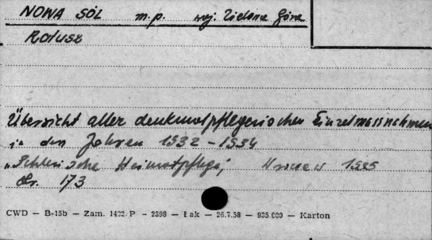 NOWA SÓL m.p. woj. Zielona Góra
Ratusz
Übersicht aller denkmalpflegerischen Einzelmassnahmen
in den Jahren 1932-1934
"Schlesische Heimatpflege", 1935
S. 173
CWD — B-15b — Zam. 1422/P - 2398 — Łak — 26.7.58 — 935.000 — Karton